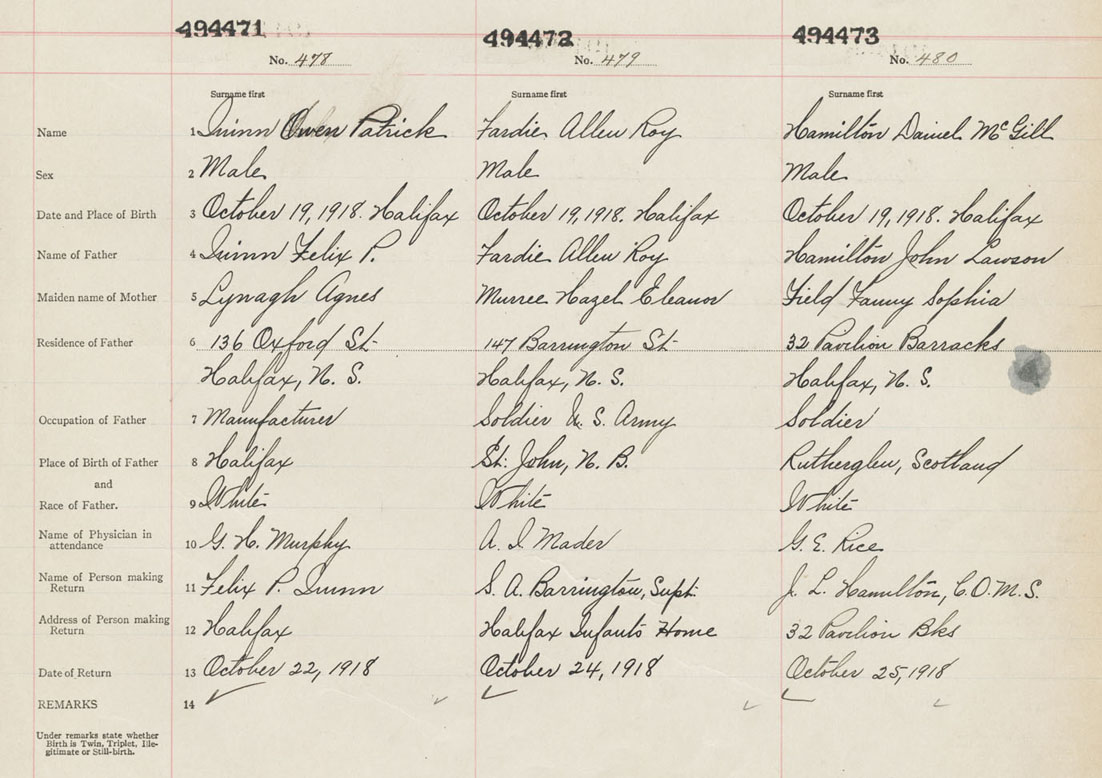 494471 494472 494473
No. 478 No. 479 No. 480
Surname first Surname first Surname first
Name 1 Quinn Owen Patrick Fardie Allen Roy Hamilton Daniel McGill
Sex 2 Male Male Male
Date and Place of Birth 3 October 19, 1918. Halifax October 19, 1918. Halifax October 19, 1918. Halifax
Name of Father 4 Quinn Felix P. Fardie Allen Roy Hamilton John Lawson
Maiden name of Mother 5 Lynagh Agnes Murree Hazel Eleanor Field Fanny Sophia
Residence of Father 6 136 Oxford St- 147 Barrington St- 32 Pavilion Barracks
Halifax, N. S. Halifax, N. S. Halifax, N. S.
Occupation of Father 7 Manufacturer Soldier U. S. Army Soldier
Place of Birth of Father 8 Halifax St. John, N. B. Rutherglen, Scotland
and
Race of Father. 9 White White White
Name of Physician in
attendance 10 G. H. Murphy A. I. Mader G. E. Rice
Name of Person making
Return 11 Felix P. Quinn S. A. Barrington, Supt. J. L. Hamilton, C.O.M.S.
Address of Person making
Return 12 Halifax Halifax Infants Home 32 Pavilion Bks
Date of Return 13 October 22, 1918 October 24, 1918 October 25, 1918
REMARKS 14
Under remarks state whether
Birth is Twin, Triplet, Ille-
gitimate or Still-birth.